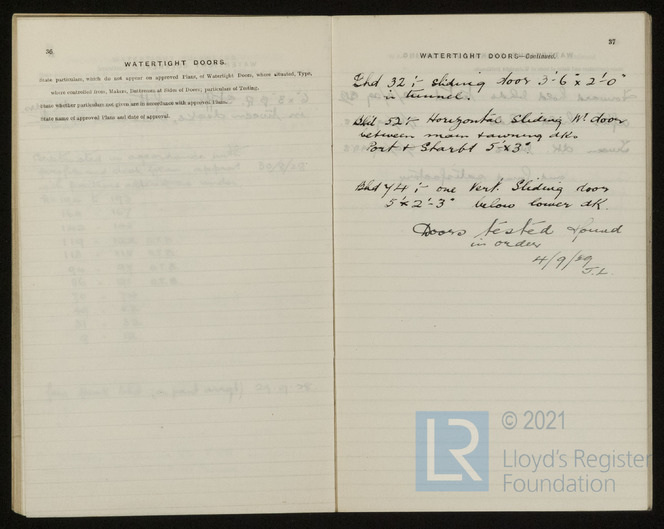 36
WATERTIGHT DOORS.
State particulars, which do not appear on approved Plans, of Watertight Doors, where situated, Type,
where controlled from, Makers, Thickness at Sides of Doors, particulars of Testing.
State whether particulars not given are in accordance with approved Plans.
State name of approved Plans and date of approval.
37
WATERTIGHT DOORS—Continued.
Bhd 32 :- Sliding door 3'-6" x 2'-0"
in tunnel.
Bhd 52 :- Horizontal Sliding Wt door
between main & awning dks
Port & Starbd 5' x 3'
Bhd 74 :- one Vert. Sliding door
5' x 2'-3" below lower dk.
Doors tested found
in order
4/9/29
J.L.
LR
© 2021
Lloyd's Register
Foundation